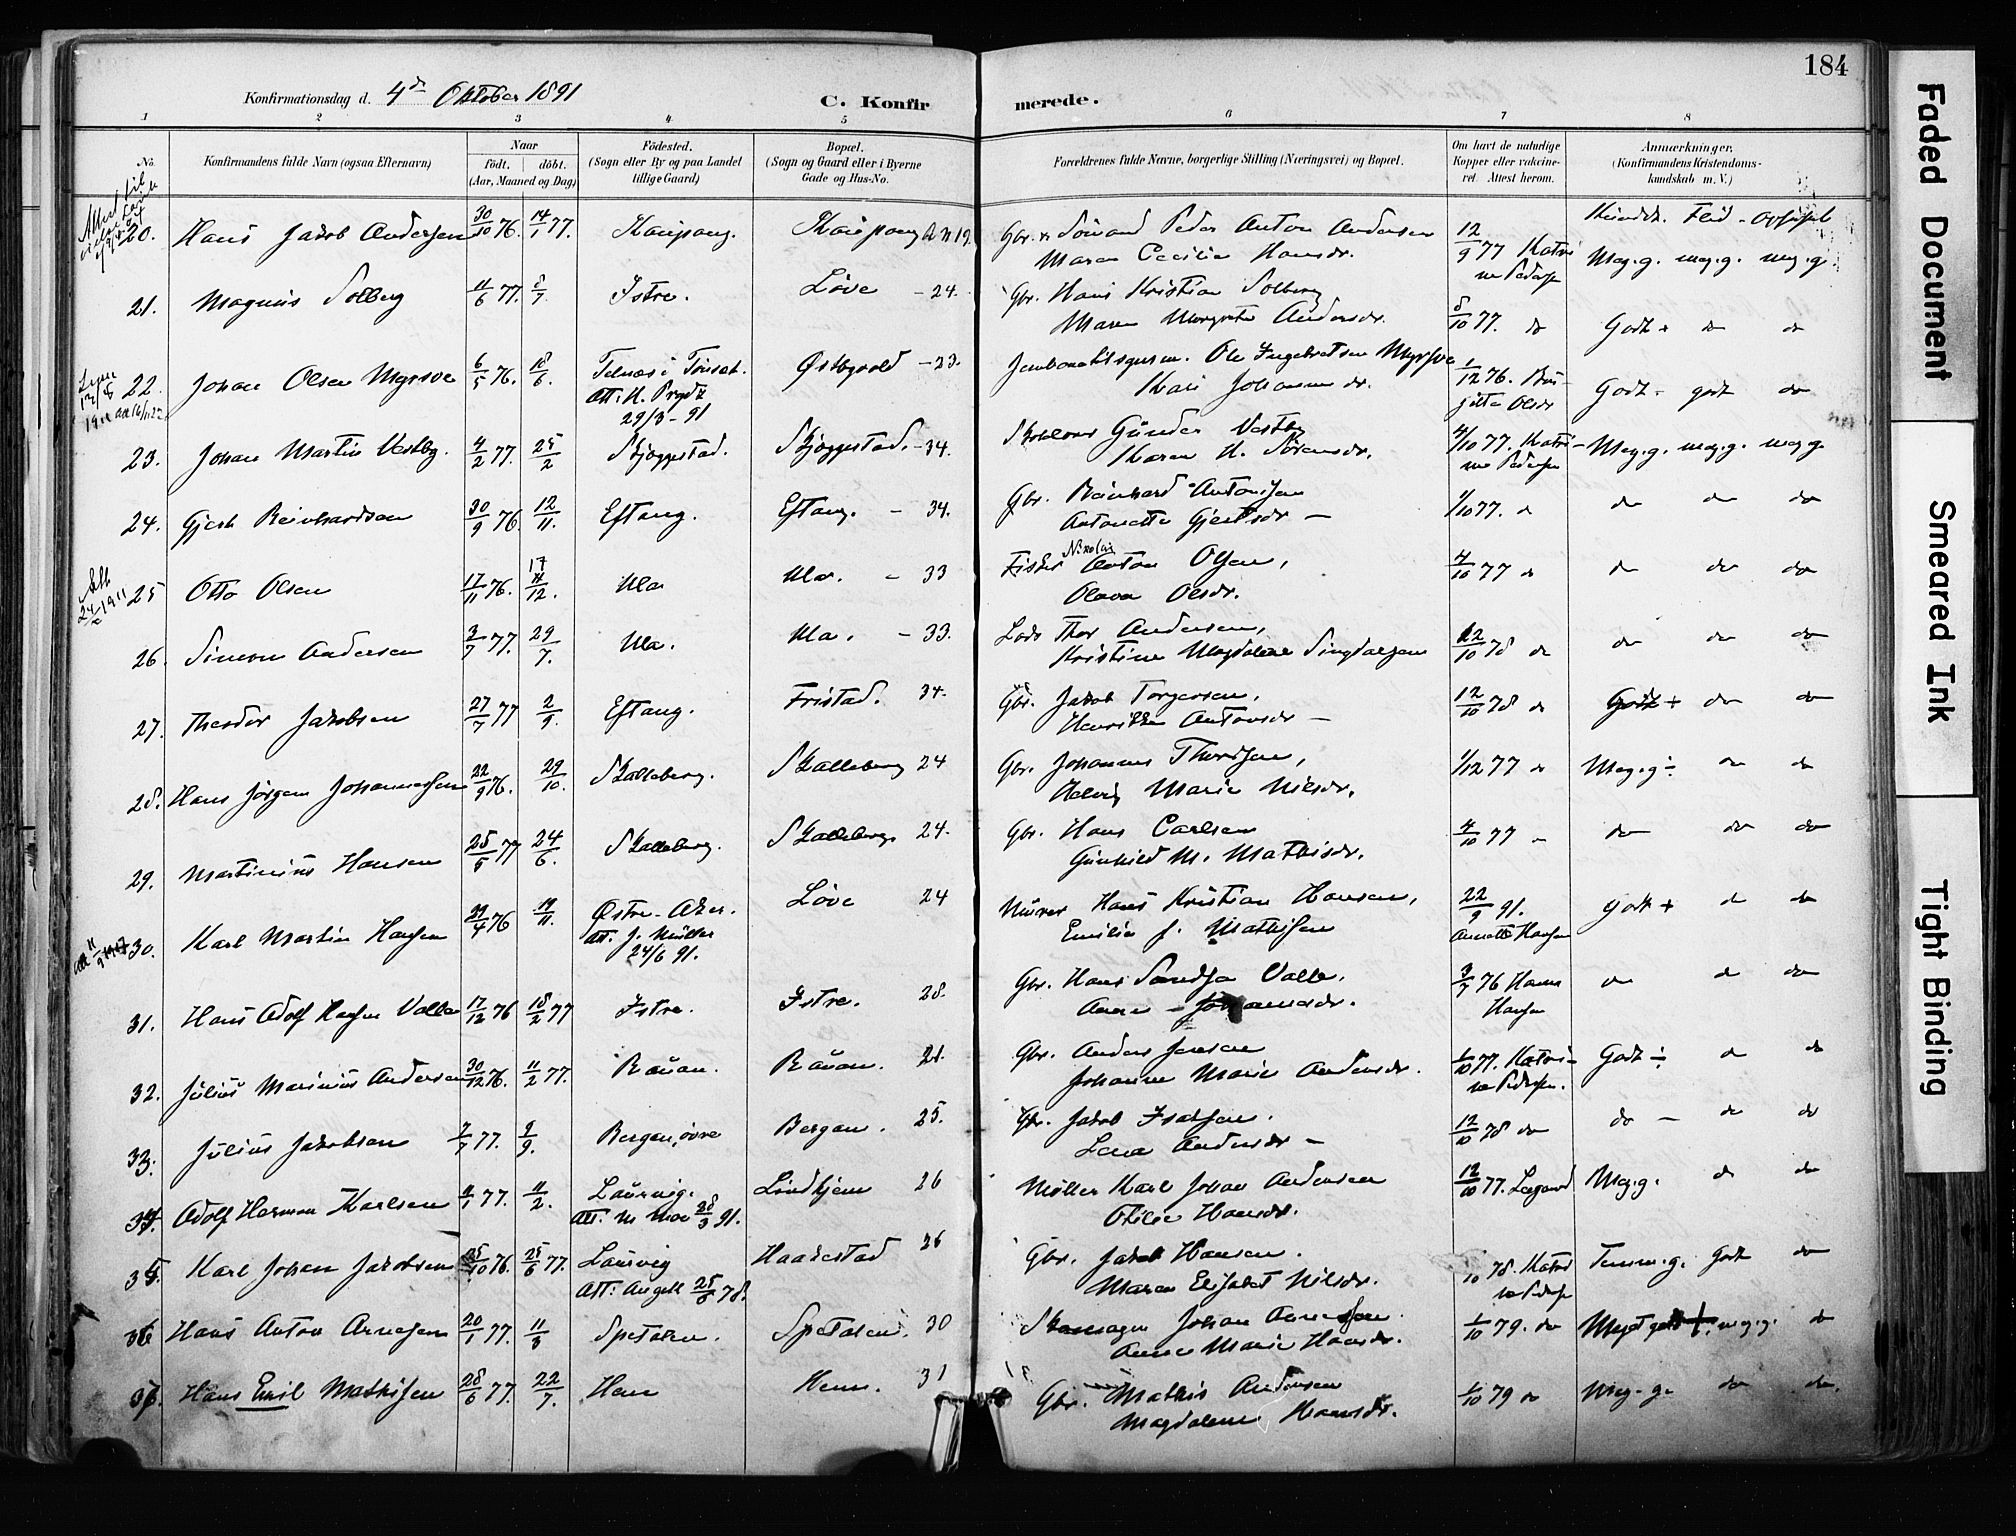 184
Konfirmationsdag d. 4de Oktober 1891
C. Konfirmerede.
1 2 3 4 5 6 7 8
No. Konfirmandens fulde Navn (ogsaa Efternavn) Naar født. døbt. (Aar, Maaned og Dag) Fødested. (Sogn eller By og paa Landet tillige Gaard) Bopæl. (Sogn og Gaard eller i Byerne Gade og Hus-No. Forældrenes fulde Navne, borgerlige Stilling (Næringsvei) og Bopæl. Om havt de naturlige Kopper eller vaccineret. Attest herom. Anmærkninger. (Konfirmandens Kristendomskundskab m. V.)
Kundsk. Flid - Opførsel
20. Hans Jakob Andersen 30/10 76. 14/1 77. Kaupang. Kaupang 19 Gbr. Peder Anton Andersen 12/9 77 Katri-
Maren Cecilie Hansdr. ne Pedersen Meg.g. meg.g. meg.g.
21. Magnus Solberg 11/6 77. 8/7. Istre. Løve - 24. Gbr. Hans Kristian Solberg
Maren Margrete Andersdr. 8/10 77. do Godt + do do
22. Johan Olsen Myrsve 6/5 76. 18/6. Østbyrold - 23. Ole Ingebretsen Myrsve
Att: H. Prydz Kari Johannesdr. 1/12 76. Bir-
29/3 - 91 gitte Olsdr Godt - godt do
23. Johan Martin Vestby. 4/2 77. 25/2 Skjøggestad. Skjøggestad. - 34. Gunder Vestby
Karen H. Sørensdr. 4/10 77. Katri-
ne Pedersen Meg.g. meg.g. meg.g
24. Gjert Reinhardsen 30/9 76 12/11. Eftang. Eftang. - 34. Gbr. Reinhard Antonsen
Antonette Gjertsdr - 1/10 77. do do do do
25 Otto Olsen 17/11 76. 17/12. Ula Ula. - 33 Fisker Nikolai Anton Olsen,
Olava Olsdr. 4/10 77 do do do do
Att 24/2 1911
26. Simon Andersen 3/7 77. 29/7. Ula. Ula. - 33. Lods Thor Andersen,
Kristine Magdalene Singdalsen 12/10 78 do do do do
27. Theodor Jakobsen 27/7 77 2/9. Eftang. Fristad. 34. Gbr. Jakob Torgersen,
Henrikke Antonsdr - 12/10 78 do Godt + do do
28. Hans Jørgen Johannessen 22/9 76. 29/10. Skalleberg. Skalleberg 24 Gbr. Johannes Thordsen,
Hedvig Marie Nilsdr. 1/12 77 do Meg.g ÷ do do
29. Martinius Hansen 25/5 77 24/6. Skalleberg. Skalleberg. 24. Gbr. Hans Carlsen
Gunhild M. Mathisdr. 4/10 77 - do do do
30. Karl Martin Hansen 29/4 76 19/11. Østre-Aker. Løve 24 Murer Hans Kristian Hansen,
Att. J. Müller Emilie J. Mathisen 22/9 91. Annette Hansen Godt + do do
24/6 91.
31. Hans Adolf Hansen Valle 17/12 76 18/2 77 Istre. Istre. 28. Gbr. Hans Valle,
Anne - Johannesdr. 3/7 76 Hanna Hansen do do do
32. Julius Marinius Andersen 30/12 76. 11/2 77. Rauan. Rauan. 21. Gbr. Anders Jensen
Johanne Marie Andersdr. 1/10 77. Katri-
ne Pedersen. Godt ÷ do do
33. Julius Jakobsen 7/7 77. 2/9. Bergan, øvre Bergan. 25. Gbr. Jakob Isaksen.
Lena Andersdr - 12/10 78 do do - do do
34. Adolf Herman Karlsen 4/1 77. 11/2. Laurvig. Lindhjem 26 Møller Karl Johan Andersen
Att: M Moe 28/3 91. Otilie Hansdr. 12/10 77. Legaard Meg.g. do do
35. Karl Johan Jakobsen 25/10 76. 25/6 77. Laurvig Haakestad 26 Gbr. Jakob Hansen.
Att: Angell 25/6 78. Maren Elisabet Nilsdr. 10 78. Katri
ne Peders Temm.g. Godt do
36 Hans Anton Arnesen 20/1 77. 11/3 Spetalen. Spetalen. 30 Johan Arnesen.
Anne Marie Hansdr. 1/10 79. do Meget godt +. meg.g. do
37. Hans Emil Mathisen 28/6 77. 22/7. Hem Hem. 31 Gbr. Mathis Andersen
Magdalene Hansdr. 1/10 79 do Meg.g. do do.
Faded Document
Smeared Ink
Tight Binding